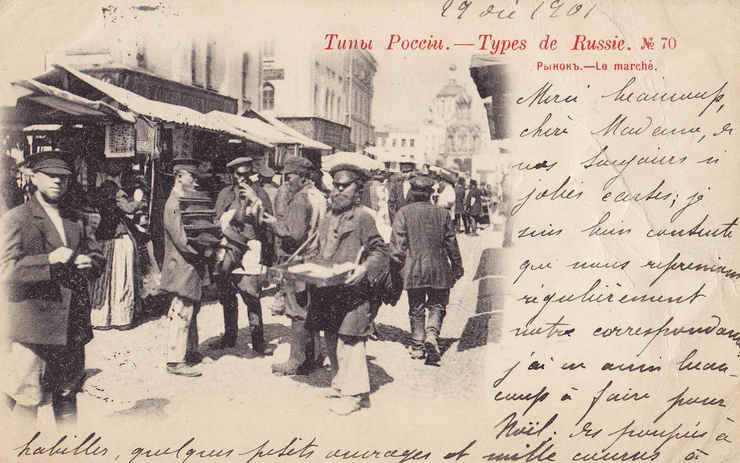 29 déc 1901
Типы Россіи. — Types de Russie. № 70
Рынокъ. — Le marché.
Merci beaucoup,
chère Madame, de
vos toujours si
jolies cartes; je
suis bien contente
que nous reprenions
régulièrement
notre correspondance
j'ai eu aussi beau-
coup à faire pour
Noël. des poupées à
habiller, quelques petits ouvrages et mille courses à